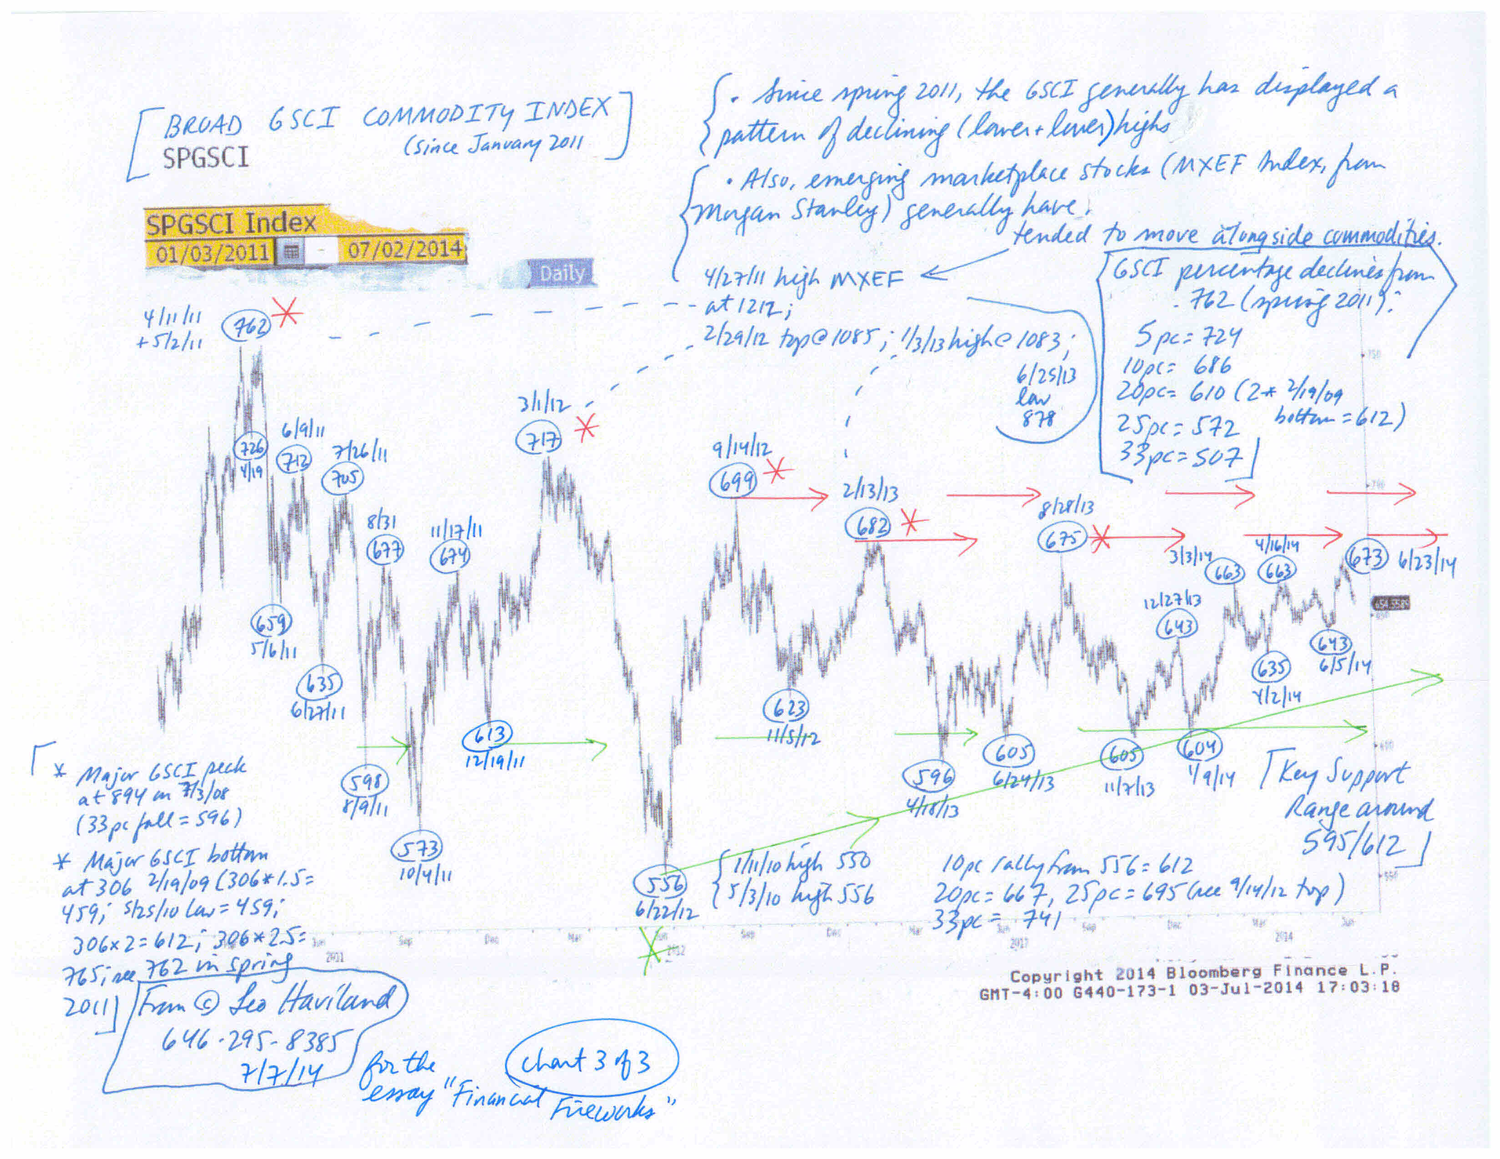 BROAD GSCI COMMODITY INDEX
(since January 2011
SPGSCI
SPGSCI Index
01/03/2011 - 07/02/2014
Daily
• Since spring 2011, the GSCI generally has displayed a
pattern of declining (lower + lower) highs
• Also, emerging marketplace stocks (MXEF Index, from
Morgan Stanley) generally have
tended to move alongside commodities.
4/27/11 high MXEF
at 1212;
2/29/12 top @ 1085; 1/3/13 high @ 1083;
6/25/13
low
878
GSCI percentage declines from
762 (spring 2011):
5pc = 724
10pc = 686
20pc = 610 (2* 2/19/09
bottom = 612)
25pc = 572
33pc = 507
4/11/11
+ 5/2/11
762
726
4/19
6/9/11
712
7/26/11
705
8/31
677
11/17/11
674
3/1/12
717
9/14/12
699
2/13/13
682
8/28/13
675
12/27/13
643
3/3/14
663
4/16/14
663
673
6/23/14
654.5589
659
5/6/11
635
6/27/11
598
8/9/11
573
10/4/11
613
12/19/11
556
6/22/12
623
11/5/12
596
4/18/13
605
6/24/13
605
11/7/13
604
1/9/14
635
4/2/14
643
6/5/14
750
700
650
600
550
* Major GSCI peak
at 894 on 7/3/08
(33pc fall = 596)
* Major GSCI bottom
at 306 2/19/09 (306*1.5 =
459; 5/25/10 low = 459;
306x2 = 612; 306*2.5 =
765; see 762 in spring
2011
1/11/10 high 550
5/3/10 high 556
10pc rally from 556 = 612
20pc = 667, 25pc = 695 (see 9/14/12 top)
33pc = 741
Key Support
Range around
595/612
Jun Sep Dec Mar Jun Sep Dec Mar Jun Sep Dec Mar Jun
2011 2012 2013 2014
Copyright 2014 Bloomberg Finance L.P.
GMT-4:00 G440-173-1 03-Jul-2014 17:03:18
From © Leo Haviland
646-295-8385
7/7/14
for the
essay "Financial Fireworks"
chart 3 of 3